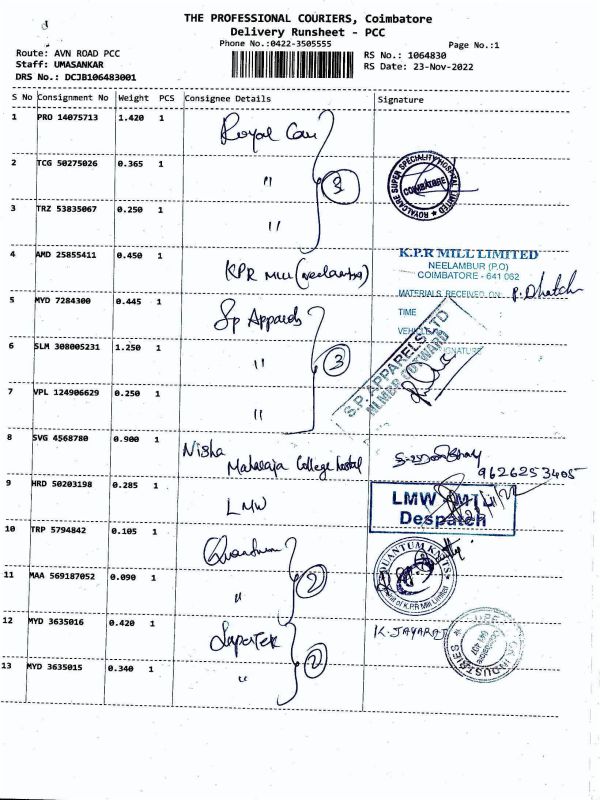 THE PROFESSIONAL COURIERS, Coimbatore
Delivery Runsheet - PCC
Phone No.:0422-3505555
Page No.:1
Route: AVN ROAD PCC
Staff: UMASANKAR
DRS No.: DCJB106483001
RS No.: 1064830
RS Date: 23-Nov-2022
S No Consignment No Weight PCS Consignee Details Signature
1 PRO 14075713 1.420 1 Royal Care
2 TCG 50275026 0.365 1 " 3
ROYALCARE SUPER SPECIALITY HOSPITAL LIMITED
COIMBATORE
3 TRZ 53835067 0.250 1 "
4 AMD 25855411 0.450 1 KPR Mill (Neelambur)
K.P.R MILL LIMITED
NEELAMBUR (P.O)
COIMBATORE - 641 062
MATERIALS RECEIVED ON
TIME
VEHICLE
SIGNATURE
5 MYD 7284300 0.445 1 Sp Apparels
6 SLM 308005231 1.250 1 " 3
S.P. APPARELS LTD
7 VPL 124906629 0.250 1 "
8 SVG 4568780 0.900 1 Nisha
Maharaja College hostel
9626253405
9 HRD 50203198 0.285 1 LMW
LMW
Despatch
10 TRP 5794842 0.105 1 Quantum
QUANTUM KNITS
Unit of K.P.R Mill Limited
11 MAA 569187052 0.090 1 " 2
12 MYD 3635016 0.420 1
K. JAYARAJ
INDUSTRIES
13 MYD 3635015 0.340 1 " 2